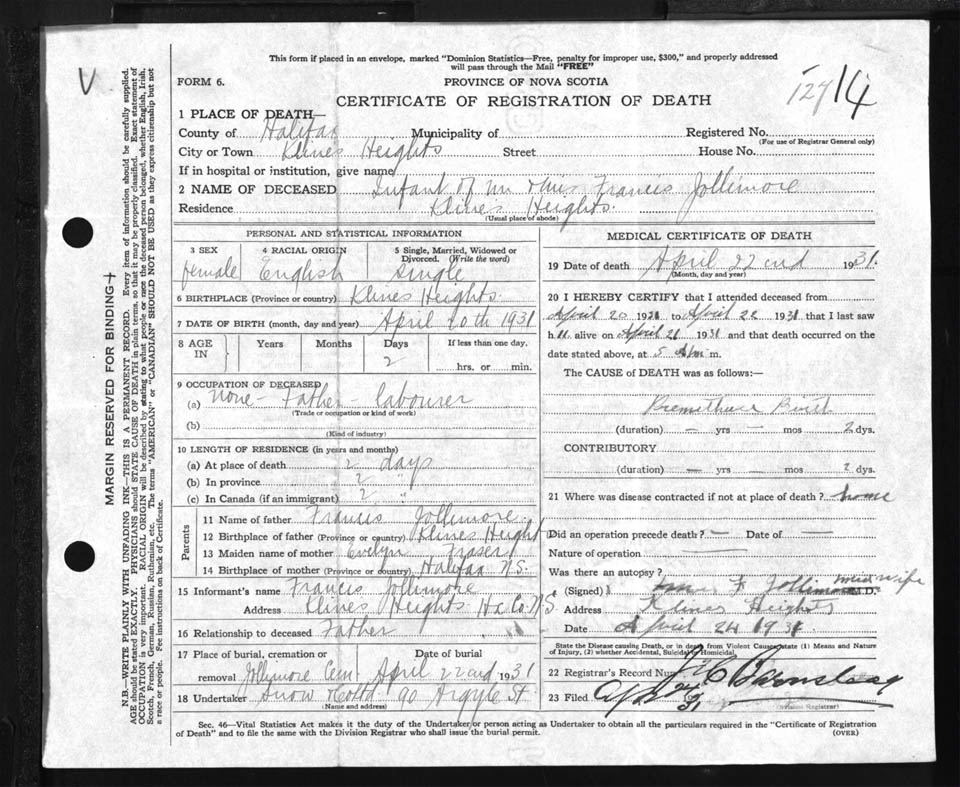 This form if placed in an envelope, marked "Dominion Statistics—Free, penalty for improper use, $300," and properly addressed
will pass through the Mail "FREE"
V
FORM 6.
PROVINCE OF NOVA SCOTIA
14
127
CERTIFICATE OF REGISTRATION OF DEATH
1 PLACE OF DEATH—
County of Halifax Municipality of Registered No.
(For use of Registrar General only)
City or Town Klines Heights Street House No.
If in hospital or institution, give name
2 NAME OF DECEASED Infant of Mr & Mrs Francis Jollimore
Residence Klines Heights.
(Usual place of abode)
PERSONAL AND STATISTICAL INFORMATION
3 SEX 4 RACIAL ORIGIN 5 Single, Married, Widowed or Divorced. (Write the word)
female English single
6 BIRTHPLACE (Province or country) Klines Heights.
7 DATE OF BIRTH (month, day and year) April 20th 1931
8 AGE IN Years Months Days If less than one day.
2 hrs. or min.
9 OCCUPATION OF DECEASED
(a) none - Father - labourer
(Trade or occupation or kind of work)
(b)
(Kind of industry)
10 LENGTH OF RESIDENCE (in years and months)
(a) At place of death 2 days
(b) In province 2 "
(c) In Canada (if an immigrant) 2 "
Parents
11 Name of father Francis Jollimore.
12 Birthplace of father (Province or country) Klines Height
13 Maiden name of mother Evelyn Fraser
14 Birthplace of mother (Province or country) Halifax N.S.
15 Informant's name Francis Jollimore
Address Klines Heights Hx. Co. N.S.
16 Relationship to deceased Father
17 Place of burial, cremation or removal Date of burial
Jollimore Cem April 22nd 1931
18 Undertaker Snow & Co Ltd 90 Argyle St
(Name and address)
MEDICAL CERTIFICATE OF DEATH
19 Date of death April 22nd 1931.
(Month, day and year)
20 I HEREBY CERTIFY that I attended deceased from
April 20 1931 to April 22 1931 that I last saw
h alive on April 21 1931 and that death occurred on the
date stated above, at 5 m.
The CAUSE of DEATH was as follows:—
Premethure Birth
(duration) — yrs — mos 2 dys.
CONTRIBUTORY
(duration) — yrs — mos 2 dys.
21 Where was disease contracted if not at place of death? home
Did an operation precede death? — Date of —
Nature of operation —
Was there an autopsy?
(Signed) F Jollimore midwife M.D.
Address Klines Heights
Date April 24 1931
State the Disease causing Death, or in deaths from Violent Causes state (1) Means and
Nature of Injury, (2) whether Accidental, Suicidal or Homicidal.
22 Registrar's Record Number
23 Filed Apl 24/31
(Division Registrar)
Sec. 46—Vital Statistics Act makes it the duty of the Undertaker or person acting as Undertaker to obtain all the particulars required in the "Certificate of Registration
of Death" and to file the same with the Division Registrar who shall issue the burial permit.
(OVER)
MARGIN RESERVED FOR BINDING
N.B.—WRITE PLAINLY WITH UNFADING INK—THIS IS A PERMANENT RECORD. Every item of information should be carefully supplied.
AGE should be stated EXACTLY. PHYSICIANS should STATE CAUSE OF DEATH in plain terms, so that it may be properly classified. Exact statement of
OCCUPATION is very important. RACIAL ORIGIN will be described by stating to what people or race the deceased person belonged, whether English, Irish,
Scotch, French, German, Russian, Ruthenian, etc. The terms "AMERICAN" or "CANADIAN" SHOULD NOT BE USED as they express citizenship but not
a race or people. Fee instructions on back of Certificate.